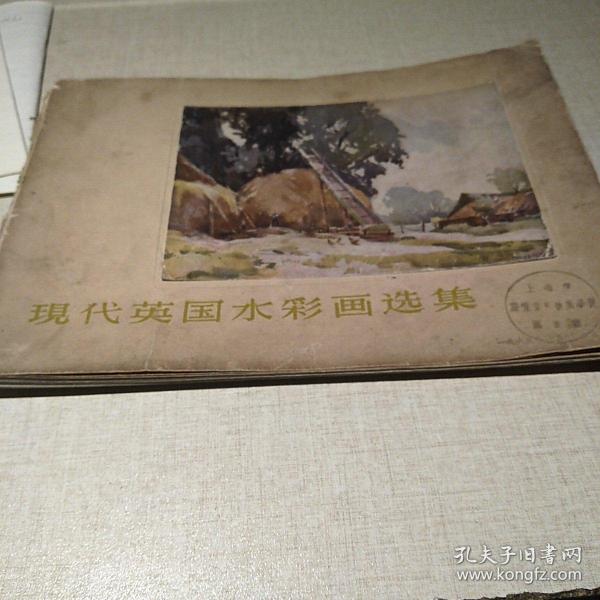 現代英国水彩画选集
上海市
孔夫子旧書网
www.kongfz.com